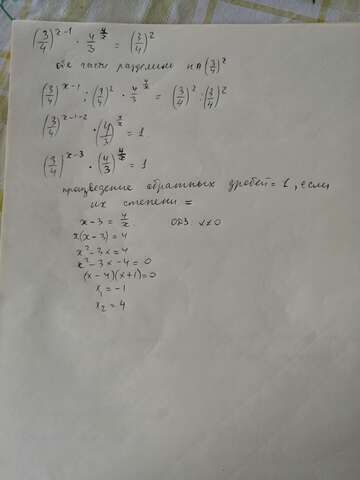 (3/4)^(x-1) · 4/3^(4/x) = (3/4)^2
обе части разделим на (3/4)^2
(3/4)^(x-1) : (3/4)^2 · 4/3^(4/x) = (3/4)^2 : (3/4)^2
(3/4)^(x-1-2) · (4/3)^(4/x) = 1
(3/4)^(x-3) · (4/3)^(4/x) = 1
произведение обратных дробей = 1, если
их степени =
x-3 = 4/x ОДЗ: x≠0
x(x-3) = 4
x²-3x = 4
x²-3x-4=0
(x-4)(x+1)=0
x₁ = -1
x₂ = 4